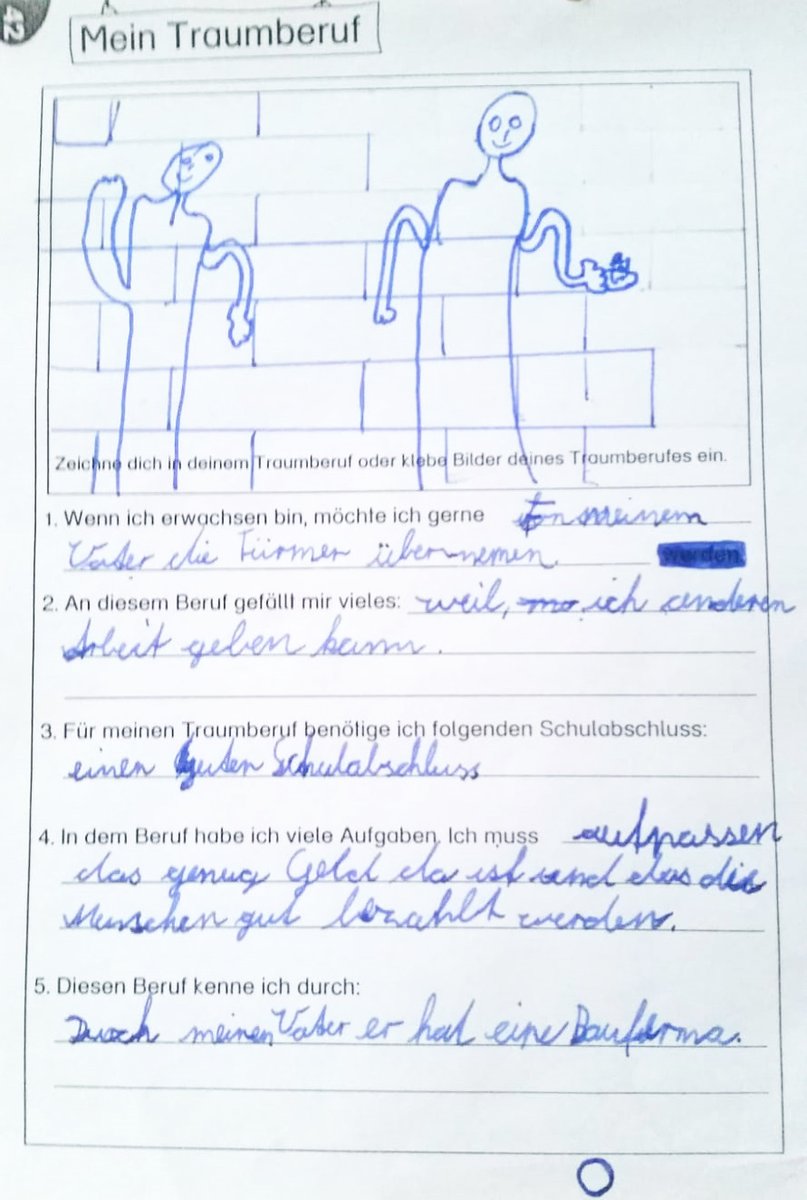 42
Mein Traumberuf
Zeichne dich in deinem Traumberuf oder klebe Bilder deines Traumberufes ein.
1. Wenn ich erwachsen bin, möchte ich gerne von meinem
Vater die Fürmer übernemen. werden.
2. An diesem Beruf gefällt mir vieles: weil, ich anderen
Arbeit geben kann.
3. Für meinen Traumberuf benötige ich folgenden Schulabschluss:
einen guten Schulabschluss
4. In dem Beruf habe ich viele Aufgaben. Ich muss aufpassen
das genug Geld da ist und das die
Menschen gut bezahlt werden.
5. Diesen Beruf kenne ich durch:
Durch meinen Vater er hat eine Baufirma.